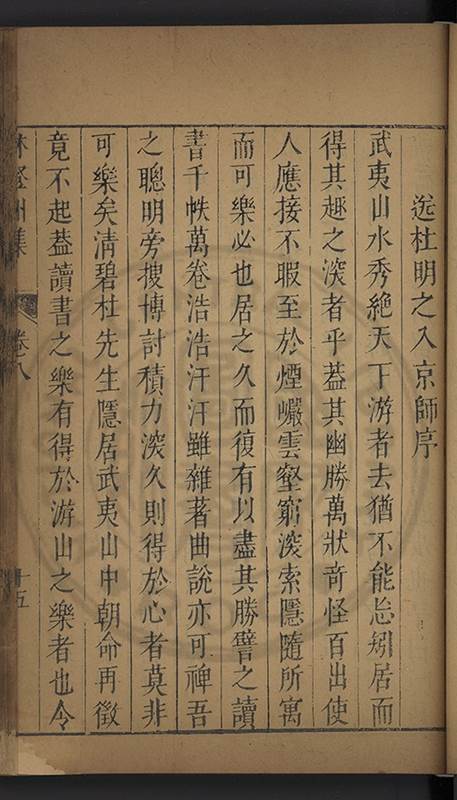 送杜明之入京師序
武夷山水秀絶天下游者去猶不能忘矧居而
得其趣之深者乎葢其幽勝萬狀竒怪百出使
人應接不暇至於煙巗雲壑窮深索隱隨所寓
而可樂必也居之久而復有以盡其勝譬之讀
書千帙萬卷浩浩汗汗雖雜著曲說亦可裨吾
之聰明旁搜博討積力深久則得於心者莫非
可樂矣清碧杜先生隱居武夷山中朝命再徵
竟不起葢讀書之樂有得於游山之樂者也今
林登州集 卷八 十五